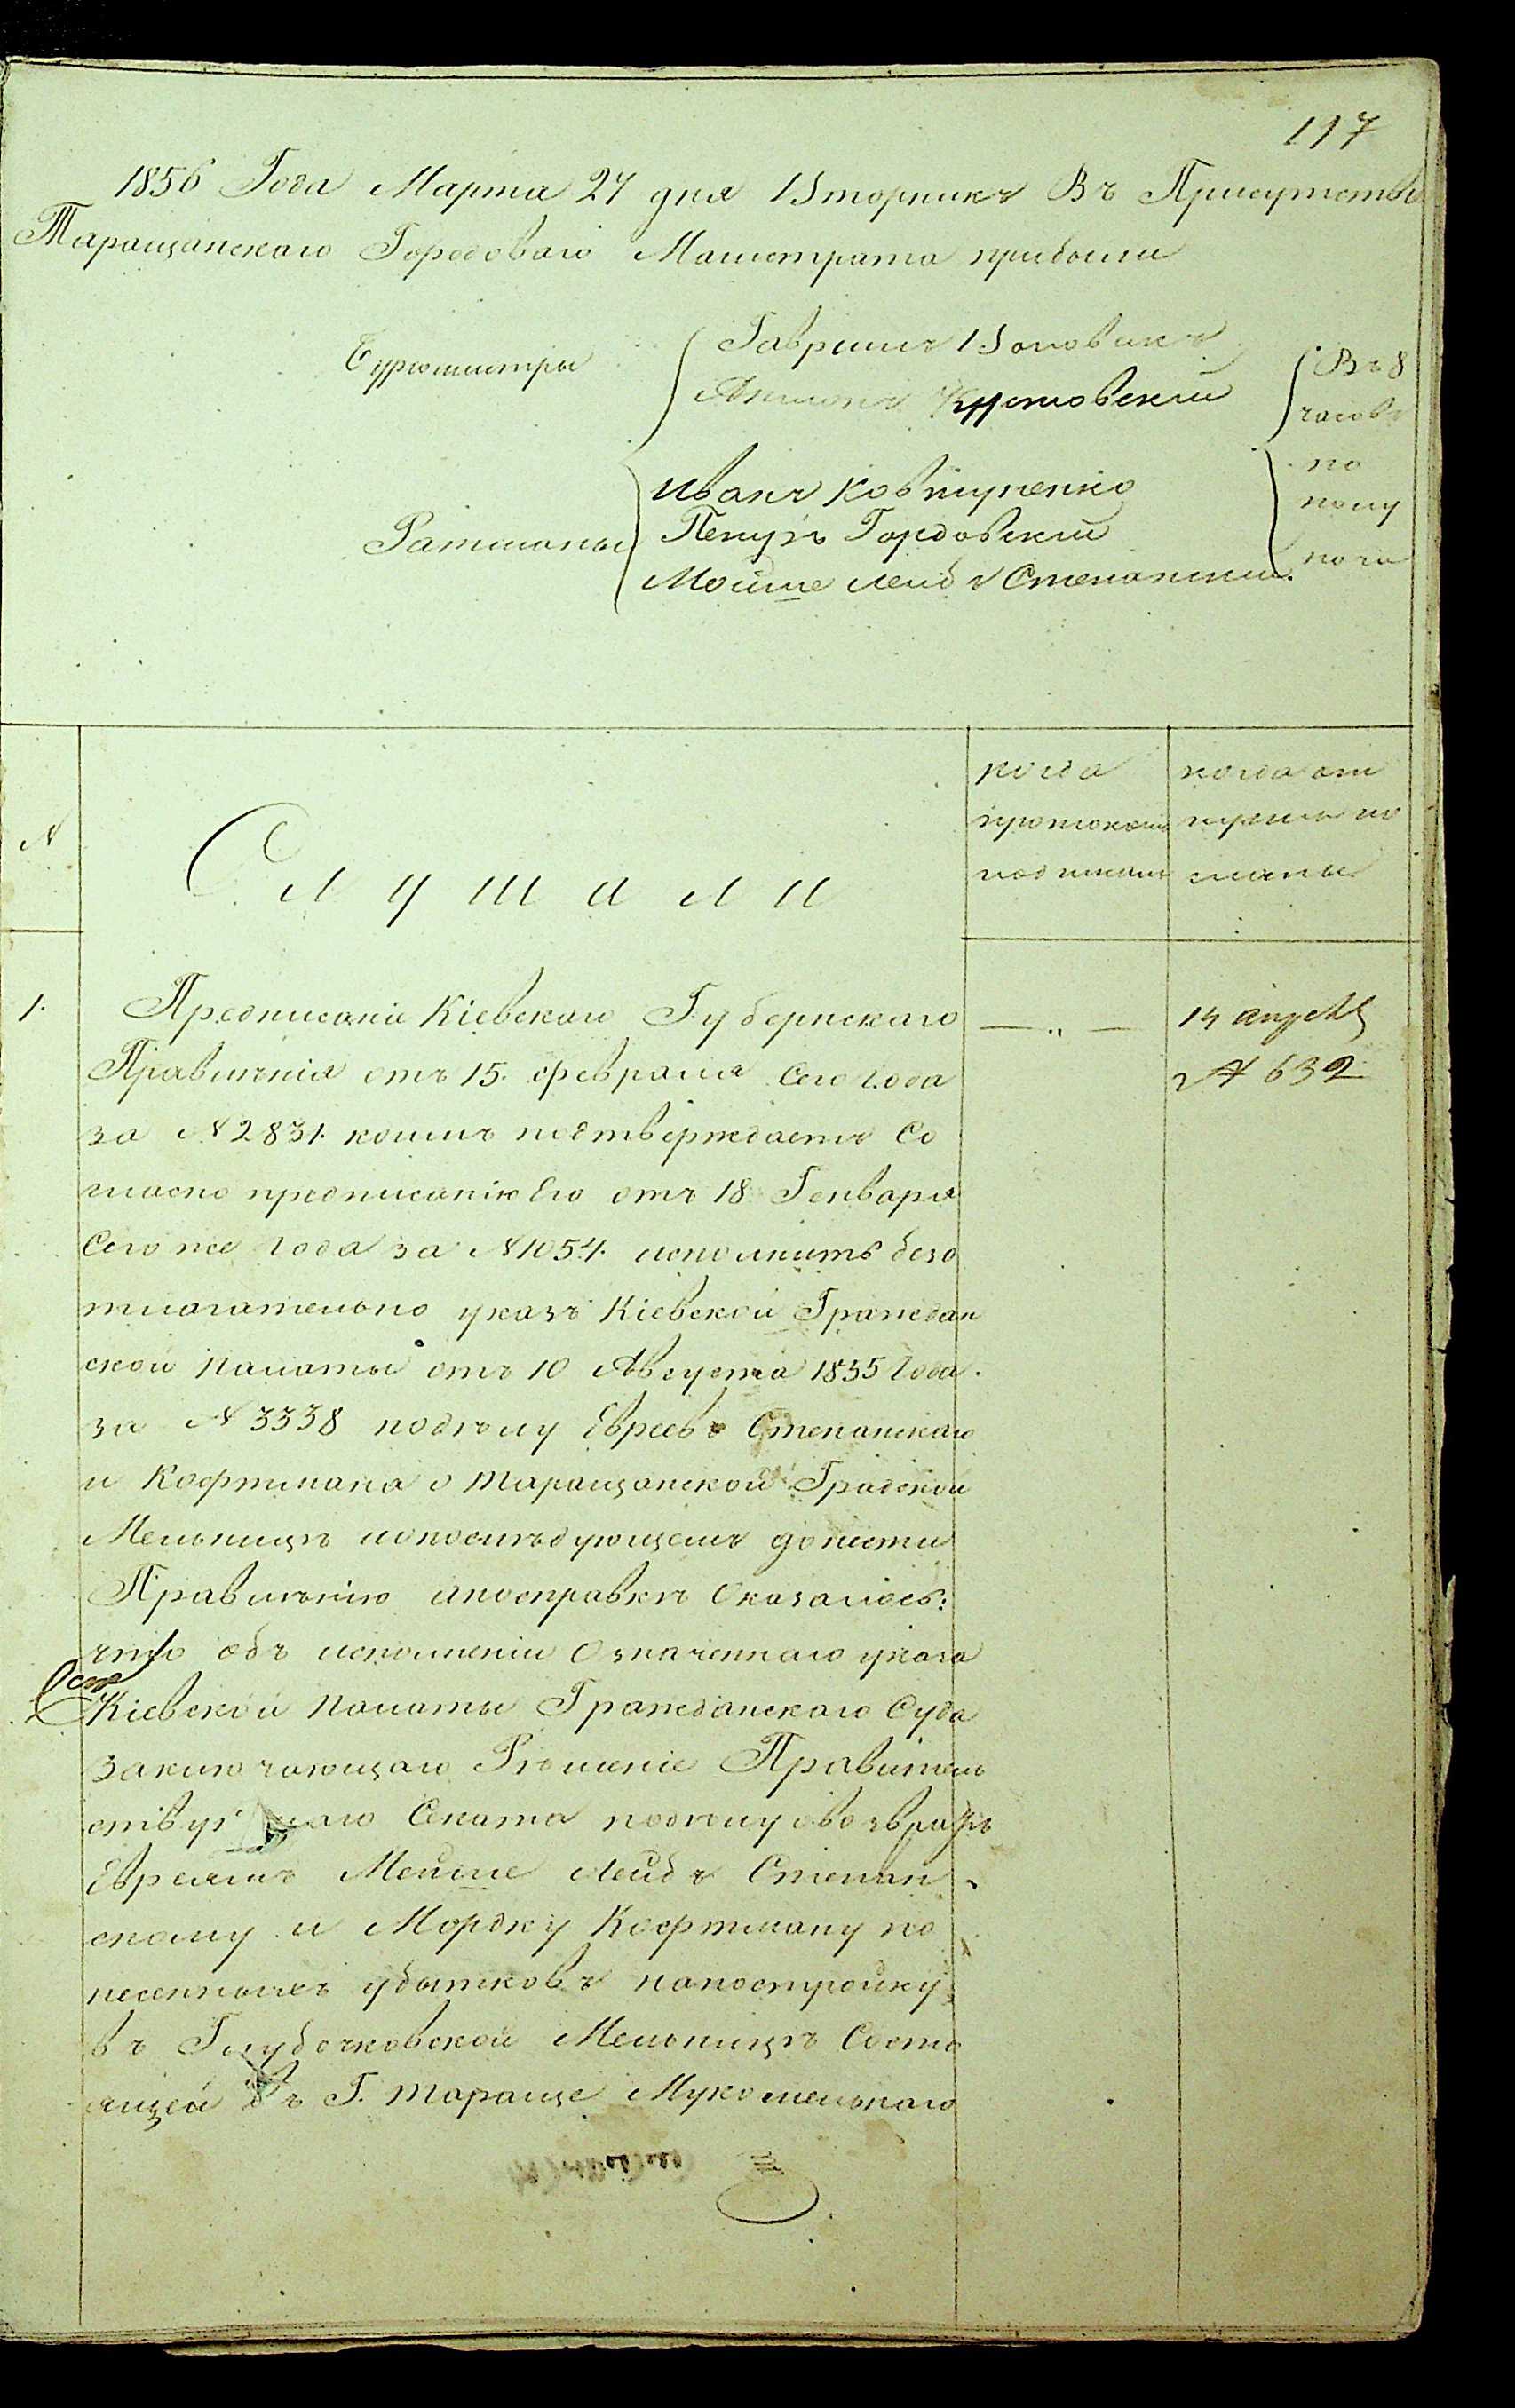 117
1856 Года Марта 27 дня Вторникъ Въ Присутствіе
Таращанскаго Городоваго Магистрата прибыли
Бургомистры
Гаврилъ Воловикъ
Антонъ
Въ 8
часовъ
Ратманы
Иванъ Ковтуненко
Петръ Гордовскій
Мойше Лейбъ Степанскій.
по
полу
ночи
N
Слушали
когда
протоколъ
подписанъ
когда от
пуски по
сланы
1.
Предписаніе Кіевскаго Губернскаго
Правленія отъ 15. февраля сего года
за N 2831. коимъ подтверждаетъ Со
гласно предписанію Его отъ 18 Генваря
Сего же года за N 1054. исполнить безо
тлагательно указъ Кіевской Граждан
ской Палаты отъ 10 Августа 1855 года.
за N 3338 подѣлу Евреевъ Степанскаго
и Кофтмана о Таращанской Градской
Мельницѣ ипослѣдующемъ донести
Правленію ипосправкѣ Оказалось:
что объ исполненіи Означеннаго указа
Кіевской Палаты Гражданскаго Суда
заключающаго Рѣшеніе Правитель
ствующаго Сената подѣлу овозвратѣ
Евреямъ Мейше Лейбѣ Степан
скому и Мордку Кофтману по
несенныхъ убытковъ напостройку
въ Глубочковской Мельницѣ Состо
ящей въ Г. Тараще Мукомельнаго
— " —
14 апреля
N 632